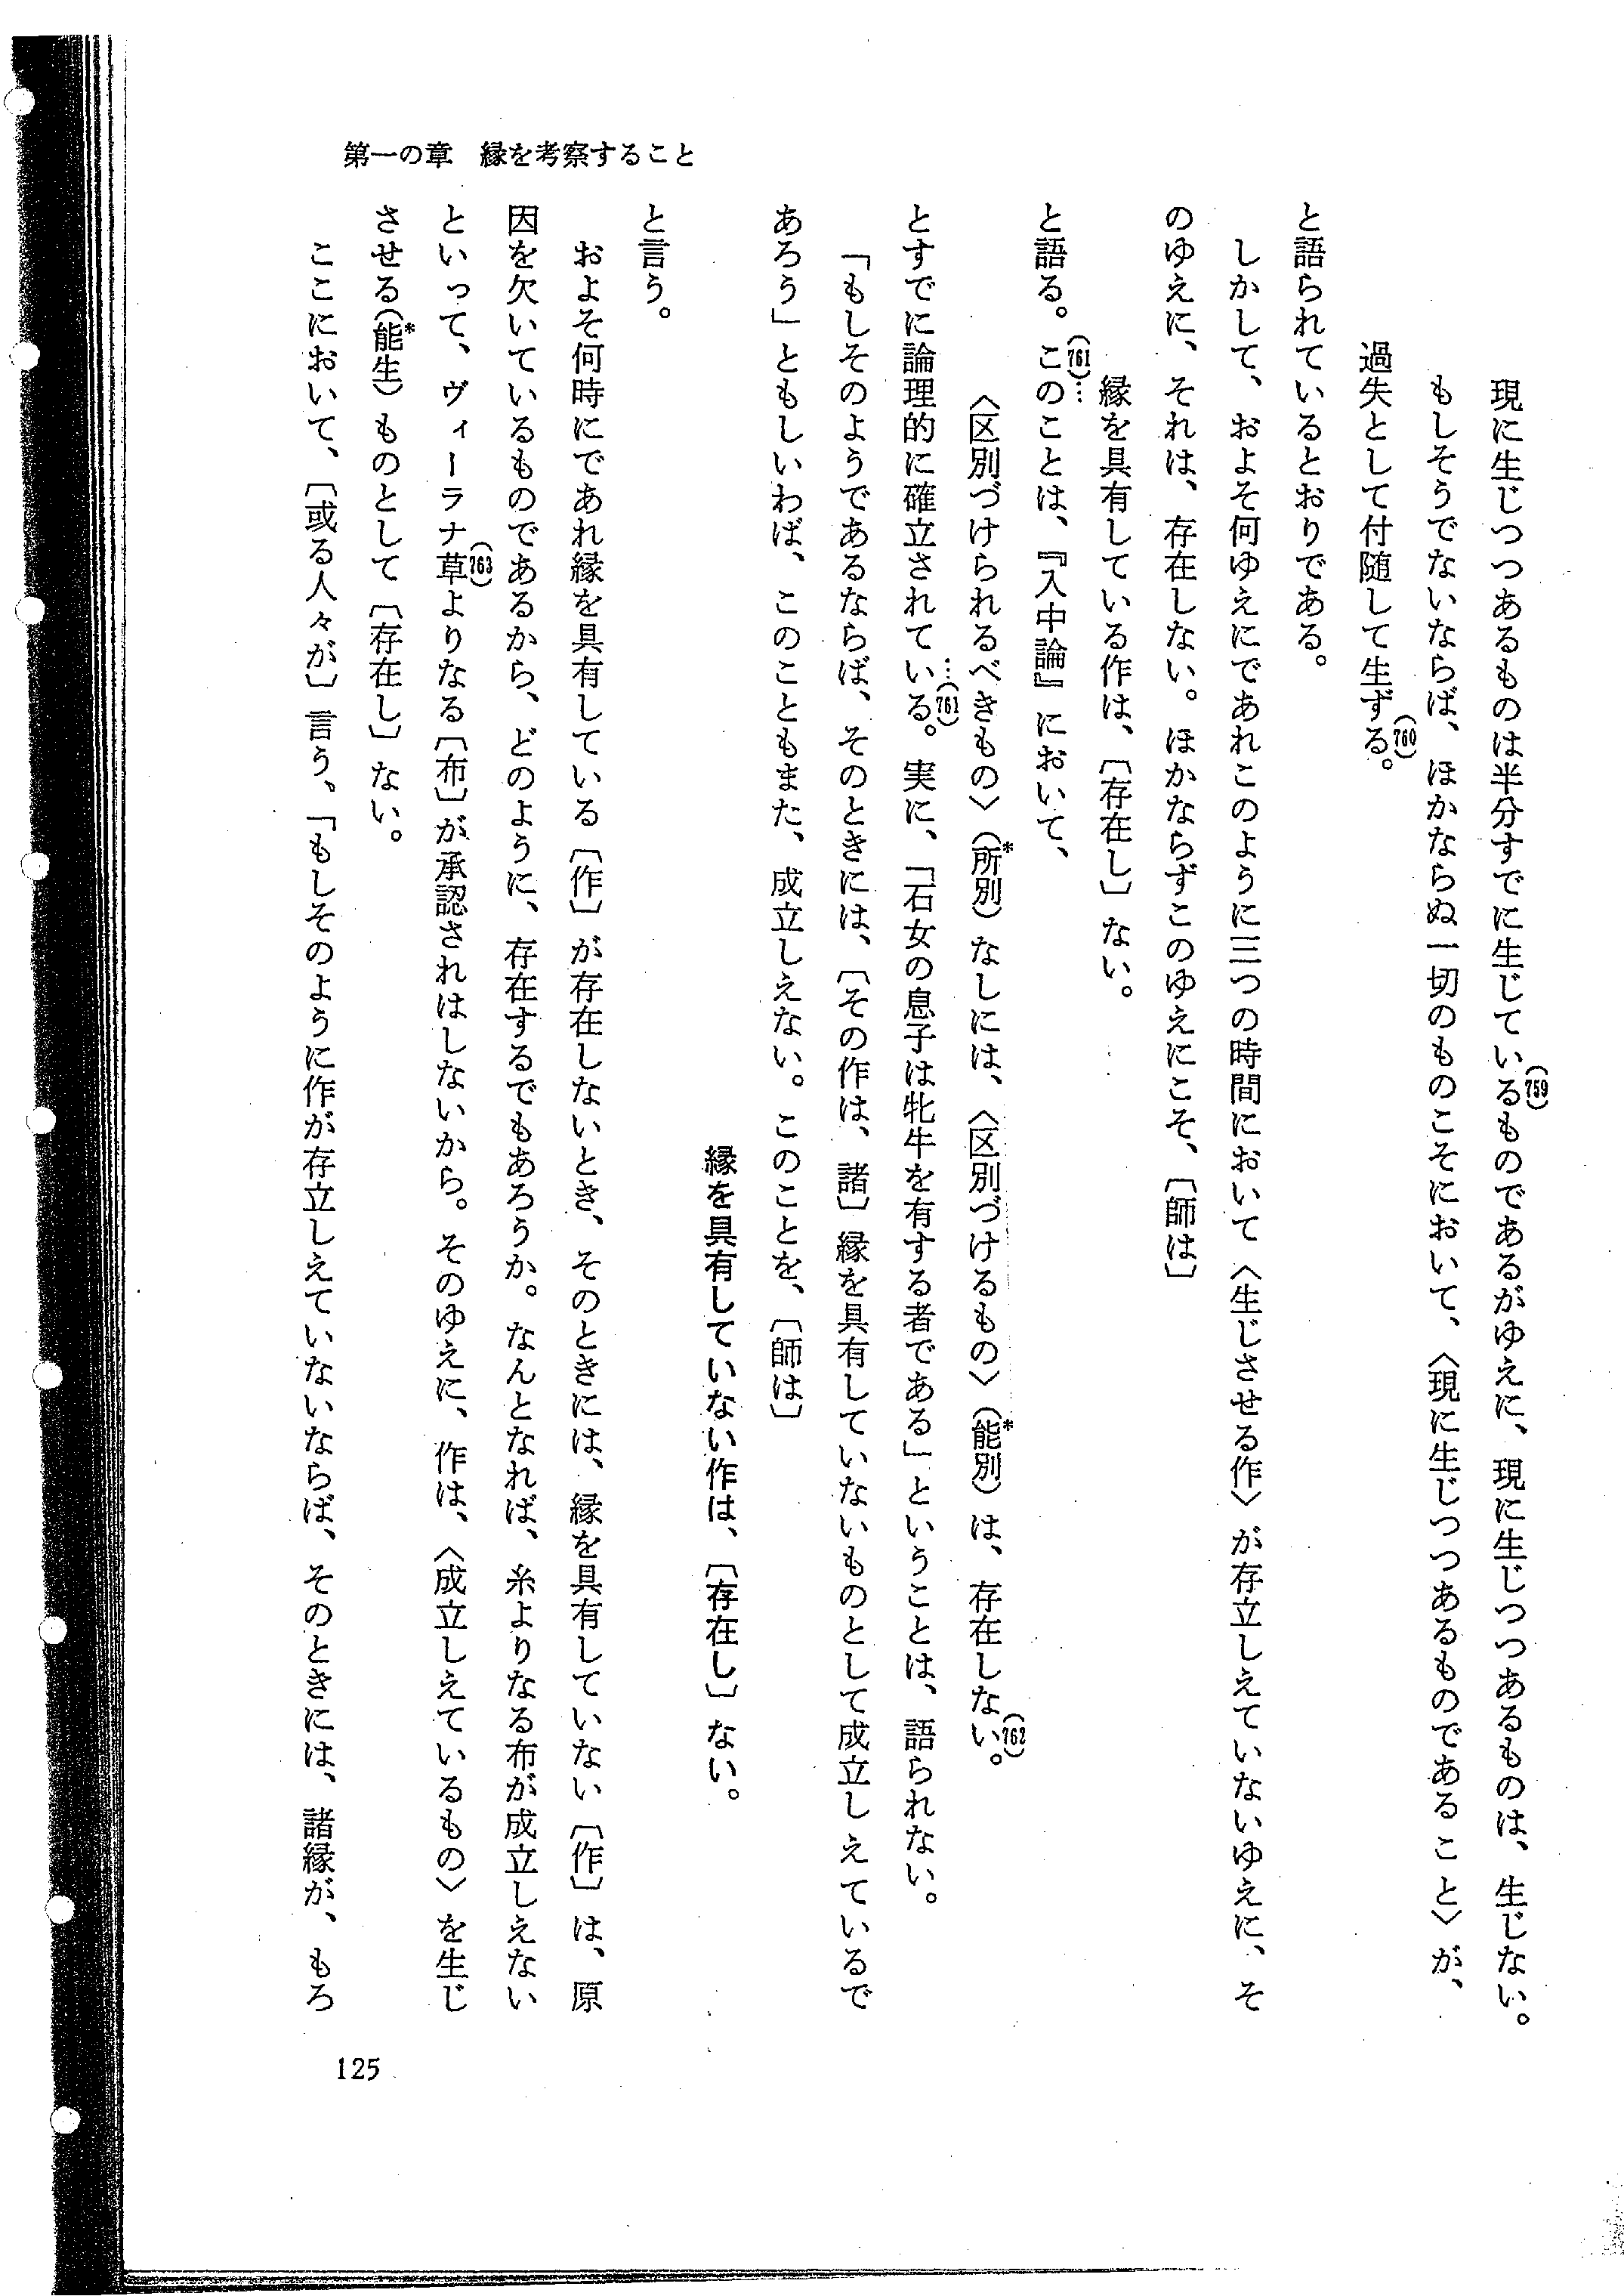 第一の章　縁を考察すること
現に生じつつあるものは半分すでに生じている(759)ものであるがゆえに、現に生じつつあるものは、生じない。
もしそうでないならば、ほかならぬ一切のものこそにおいて、〈現に生じつつあるものであること〉が、
過失として付随して生ずる(760)。
と語られているとおりである。
しかして、およそ何ゆえにであれこのように三つの時間において〈生じさせる作〉が存立しえていないゆえに、そ
のゆえに、それは、存在しない。ほかならずこのゆえにこそ、〔師は〕
縁を具有している作は、〔存在し〕ない。
と語る。(761)…このことは、『入中論』において、
〈区別づけられるべきもの〉(所別*)なしには、〈区別づけるもの〉(能別*)は、存在しない(762)。
とすでに論理的に確立されてい…(761)る。実に、「石女の息子は牝牛を有する者である」ということは、語られない。
「もしそのようであるならば、そのときには、〔その作は、諸〕縁を具有していないものとして成立しえているで
あろう」ともしいわば、このこともまた、成立しえない。このことを、〔師は〕
縁を具有していない作は、〔存在し〕ない。
と言う。
およそ何時にであれ縁を具有している〔作〕が存在しないとき、そのときには、縁を具有していない〔作〕は、原
因を欠いているものであるから、どのように、存在するでもあろうか。なんとなれば、糸よりなる布が成立しえない
といって、ヴィーラナ草(763)よりなる〔布〕が承認されはしないから。そのゆえに、作は、〈成立しえているもの〉を生じ
させる(能生*)ものとして〔存在し〕ない。
ここにおいて、〔或る人々が〕言う、「もしそのように作が存立しえていないならば、そのときには、諸縁が、もろ
125